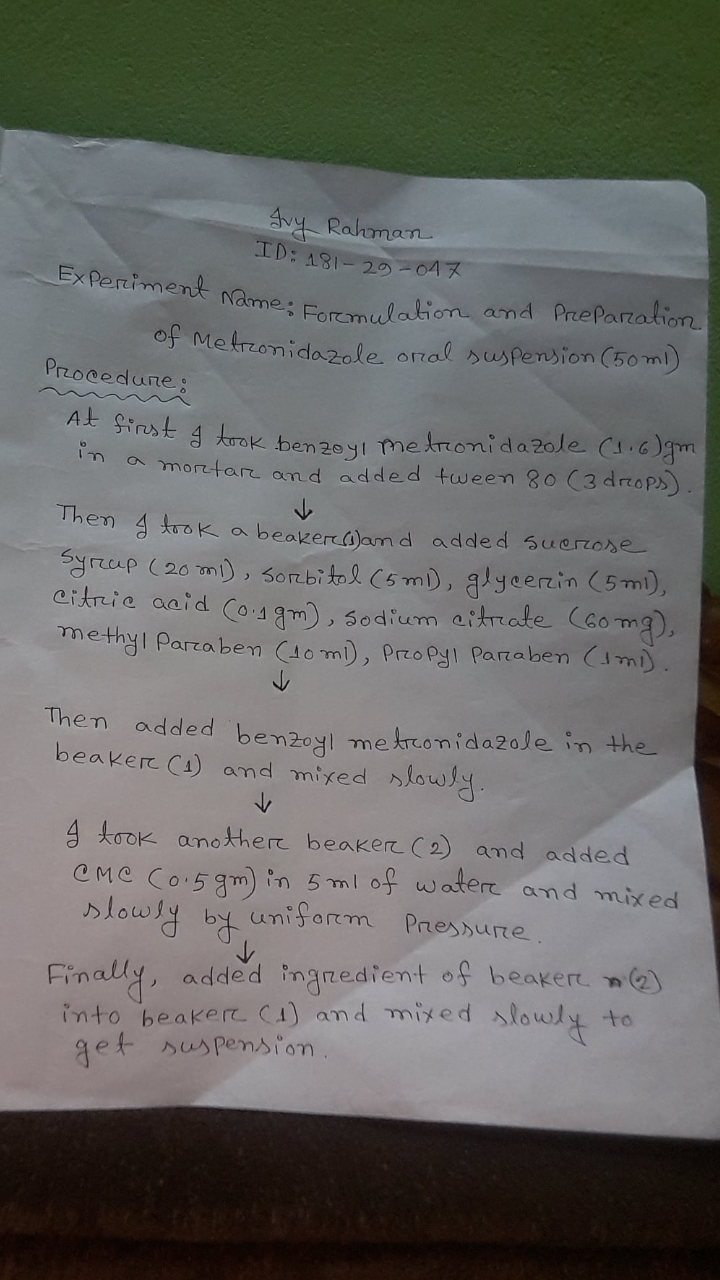 Ivy Rahman
ID: 181-29-047
Experiment Name: Formulation and Preparation
of Metronidazole oral suspension (50ml)
Procedure:
At first I took benzoyl metronidazole (1.6)gm
in a mortar and added tween 80 (3 drops).
↓
Then I took a beaker(1)and added sucrose
syrup (20 ml), sorbitol (5ml), glycerin (5ml),
citric acid (0.1gm), sodium citrate (60mg),
methyl Paraben (10 ml), Propyl Paraben (1ml).
↓
Then added benzoyl metronidazole in the
beaker (1) and mixed slowly.
↓
I took another beaker (2) and added
CMC (0.5 gm) in 5ml of water and mixed
slowly by uniform Pressure.
↓
Finally, added ingredient of beaker (2)
into beaker (1) and mixed slowly to
get suspension.